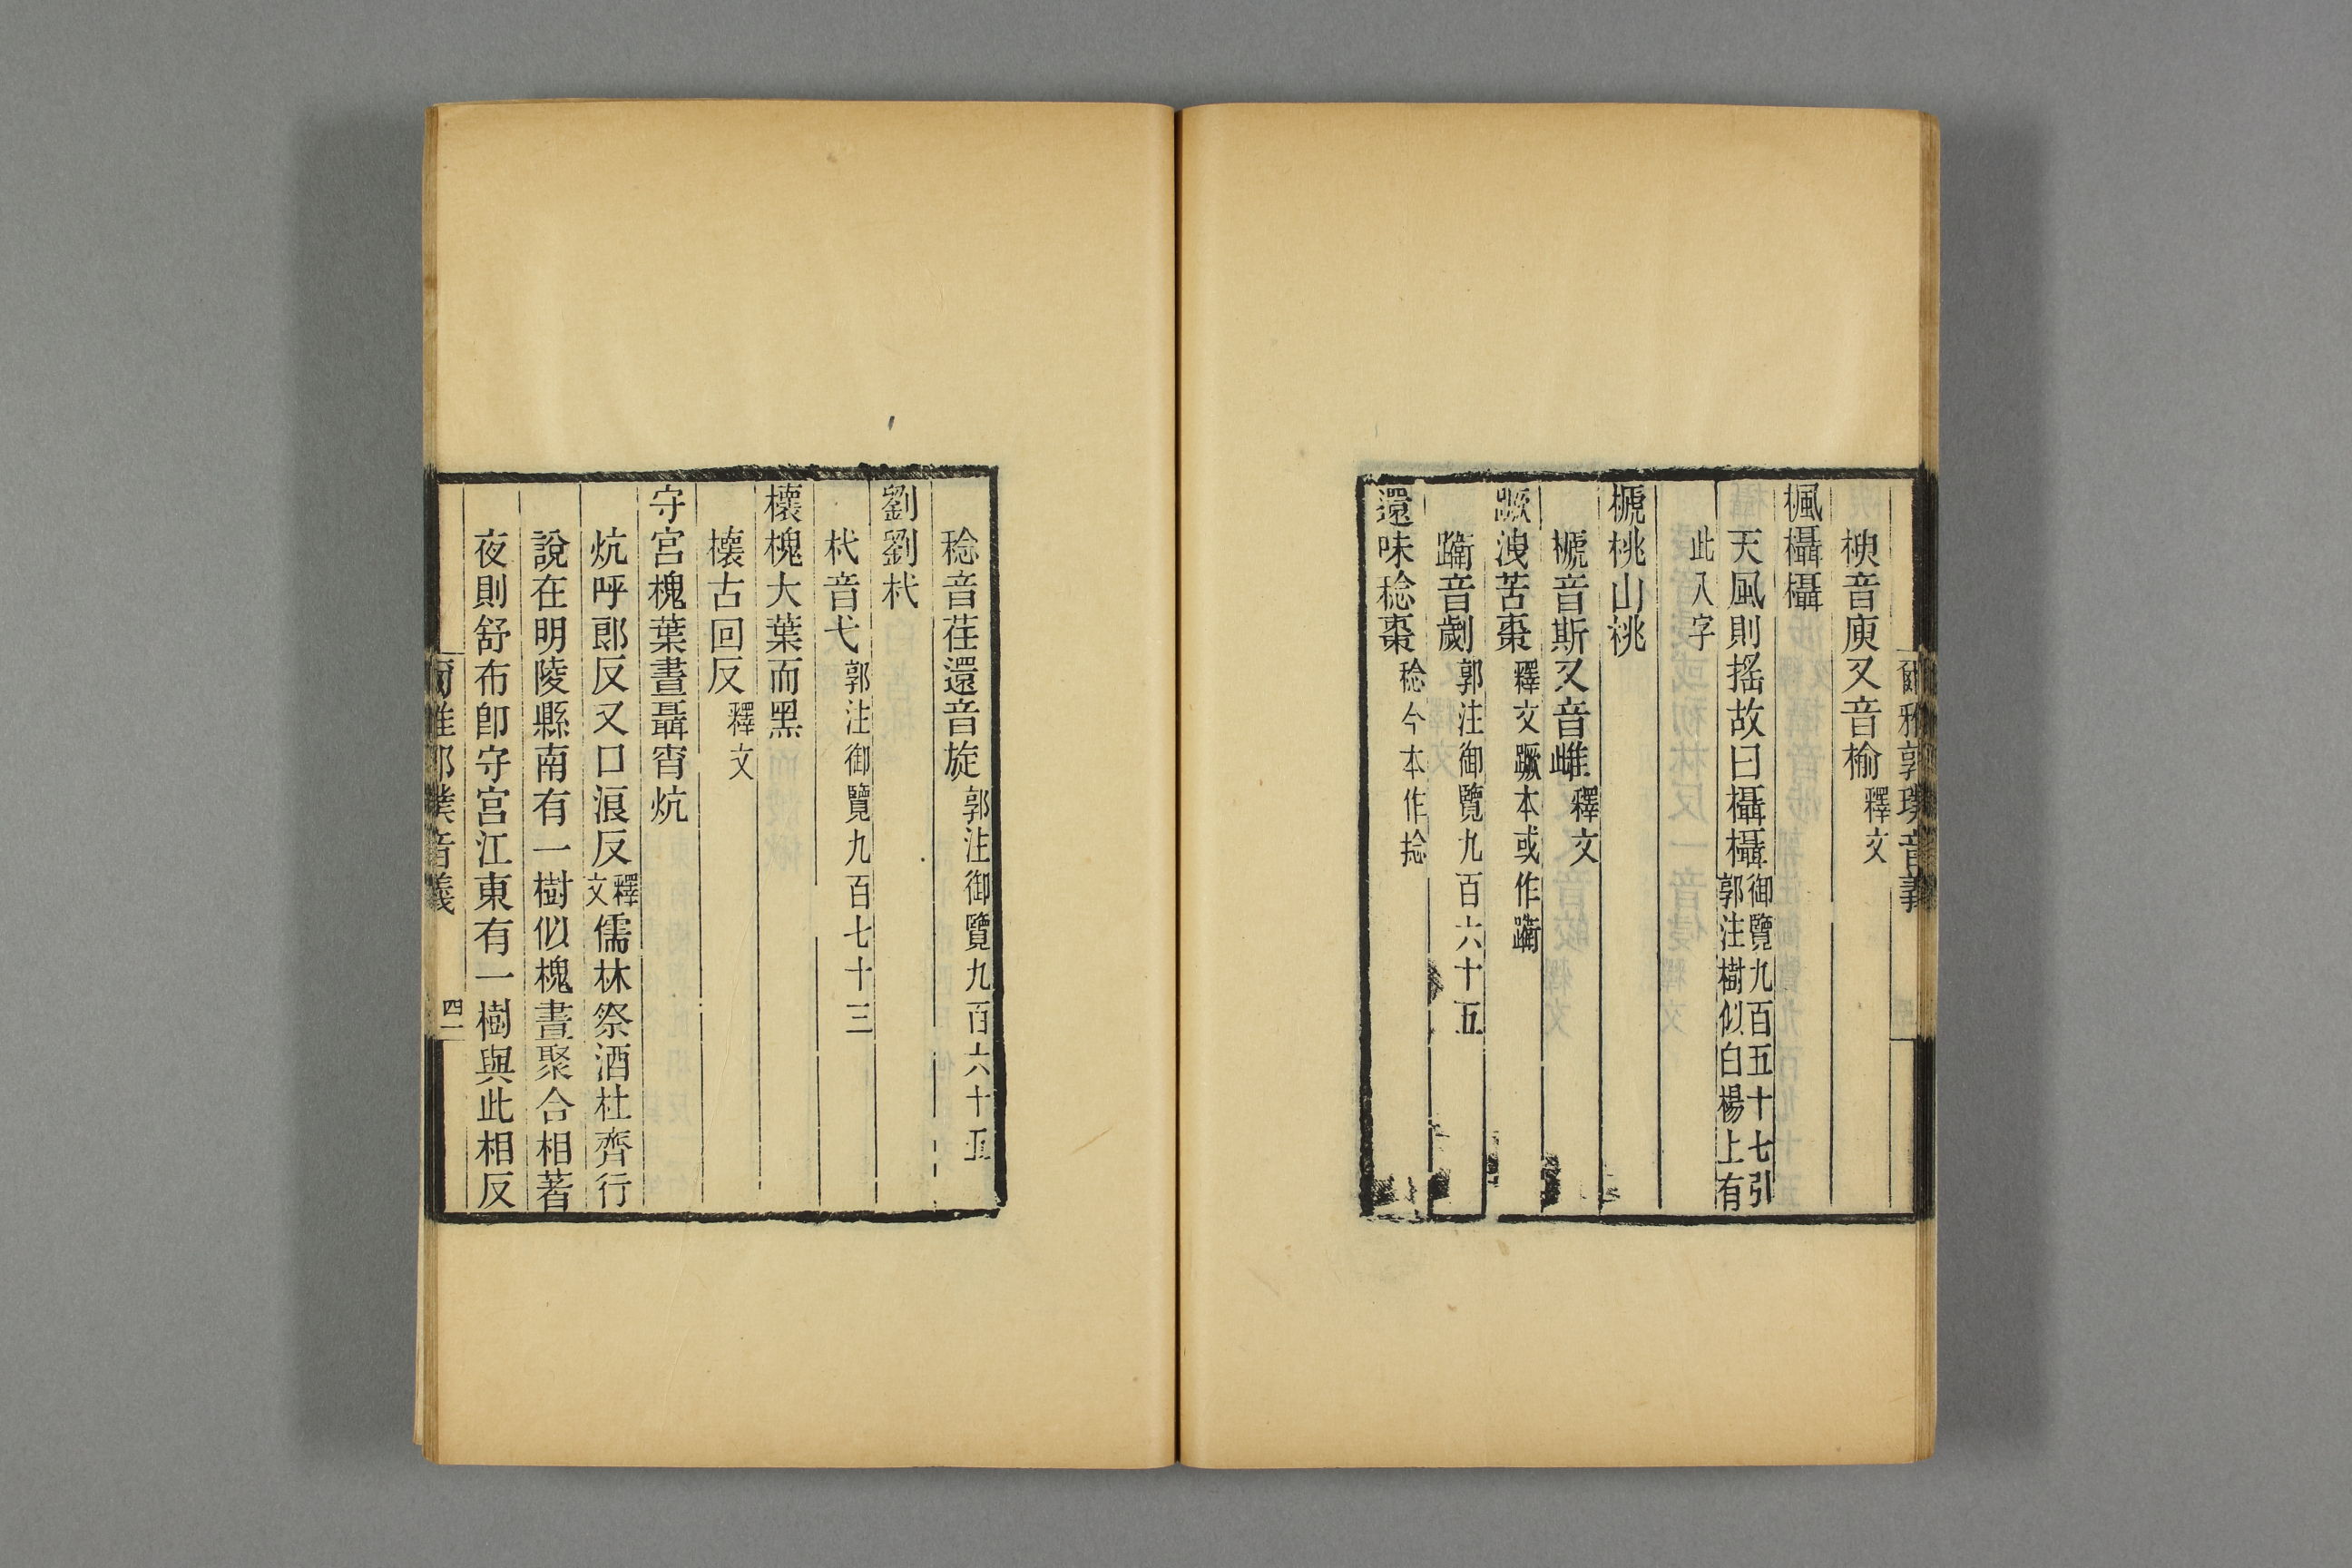 爾雅郭璞音義
楰音庾又音榆釋文
楓欇欇
天風則搖故曰欇欇御覽九百五十七引
郭注樹似白楊上有
此八字
榹桃山桃
榹音斯又音雌釋文
蹶洩苦棗釋文蹶本或作躛
躛音劌郭注御覽九百六十五
還味稔棗稔今本作捻
稔音荏還音旋郭注御覽九百六十五
劉劉杙
杙音弋郭注御覽九百七十三
櫰槐大葉而黑
櫰古回反釋文
守宮槐葉晝聶宵炕
炕呼郎反又口浪反釋文儒林祭酒杜齊行
說在明陵縣南有一樹似槐晝聚合相著
夜則舒布卽守宮江東有一樹與此相反
爾雅郭璞音義 四一